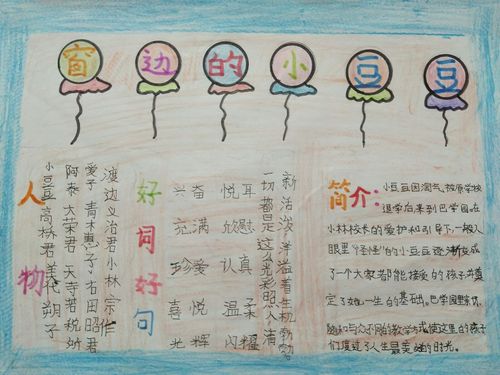 窗边的小豆豆
人物
小豆豆 高桥君 美代 朔子
阿泰 大荣君 天寺若 税所
爱子 青木惠子 右田昭君
渡边义治君 小林宗作
好词好句
兴奋 悦耳
充满 欣慰
珍爱 认真
喜悦 温柔
光辉 闪耀
一切都是这么光彩照人清
新活泼洋溢着生机勃勃
简介：
小豆豆因淘气被原学校
退学后来到巴学园在
小林校长的爱护和引导下,一般人
眼里"怪怪"的小豆豆逐渐变成
了一个大家都能接受的孩子并奠
定了她一生的基础。巴学园里亲切、
随和与众不同的教学方式使这里的孩子
们度过了人生最美好的时光。